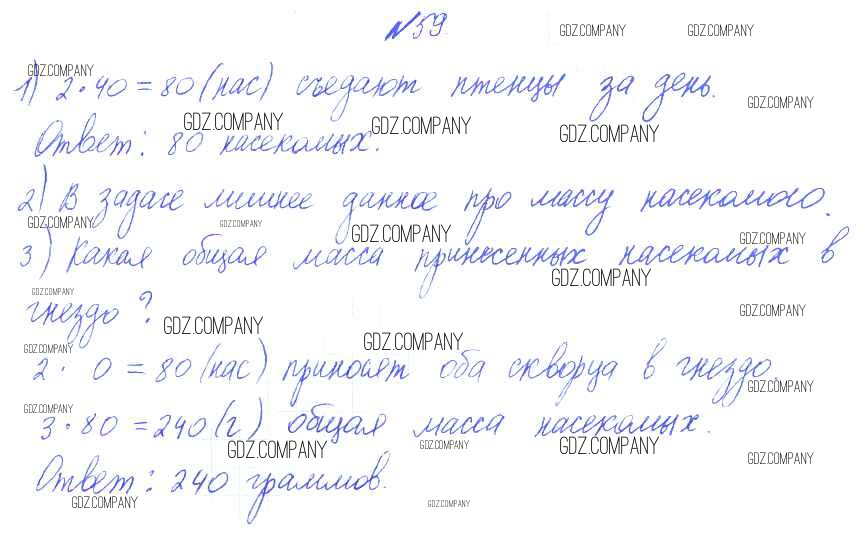 №59.
1) 2·40=80(нас) съедают птенцы за день.
Ответ: 80 насекомых.
2) В задаче лишнее данное про массу насекомого.
3) Какая общая масса принесенных насекомых в
гнездо?
2· 0=80(нас) приносят оба скворца в гнездо.
3·80=240(г) общая масса насекомых.
Ответ: 240 граммов.
GDZ.COMPANY GDZ.COMPANY
GDZ.COMPANY GDZ.COMPANY
GDZ.COMPANY GDZ.COMPANY GDZ.COMPANY
GDZ.COMPANY GDZ.COMPANY GDZ.COMPANY GDZ.COMPANY
GDZ.COMPANY GDZ.COMPANY
GDZ.COMPANY GDZ.COMPANY
GDZ.COMPANY GDZ.COMPANY GDZ.COMPANY
GDZ.COMPANY GDZ.COMPANY
GDZ.COMPANY GDZ.COMPANY GDZ.COMPANY GDZ.COMPANY
GDZ.COMPANY GDZ.COMPANY